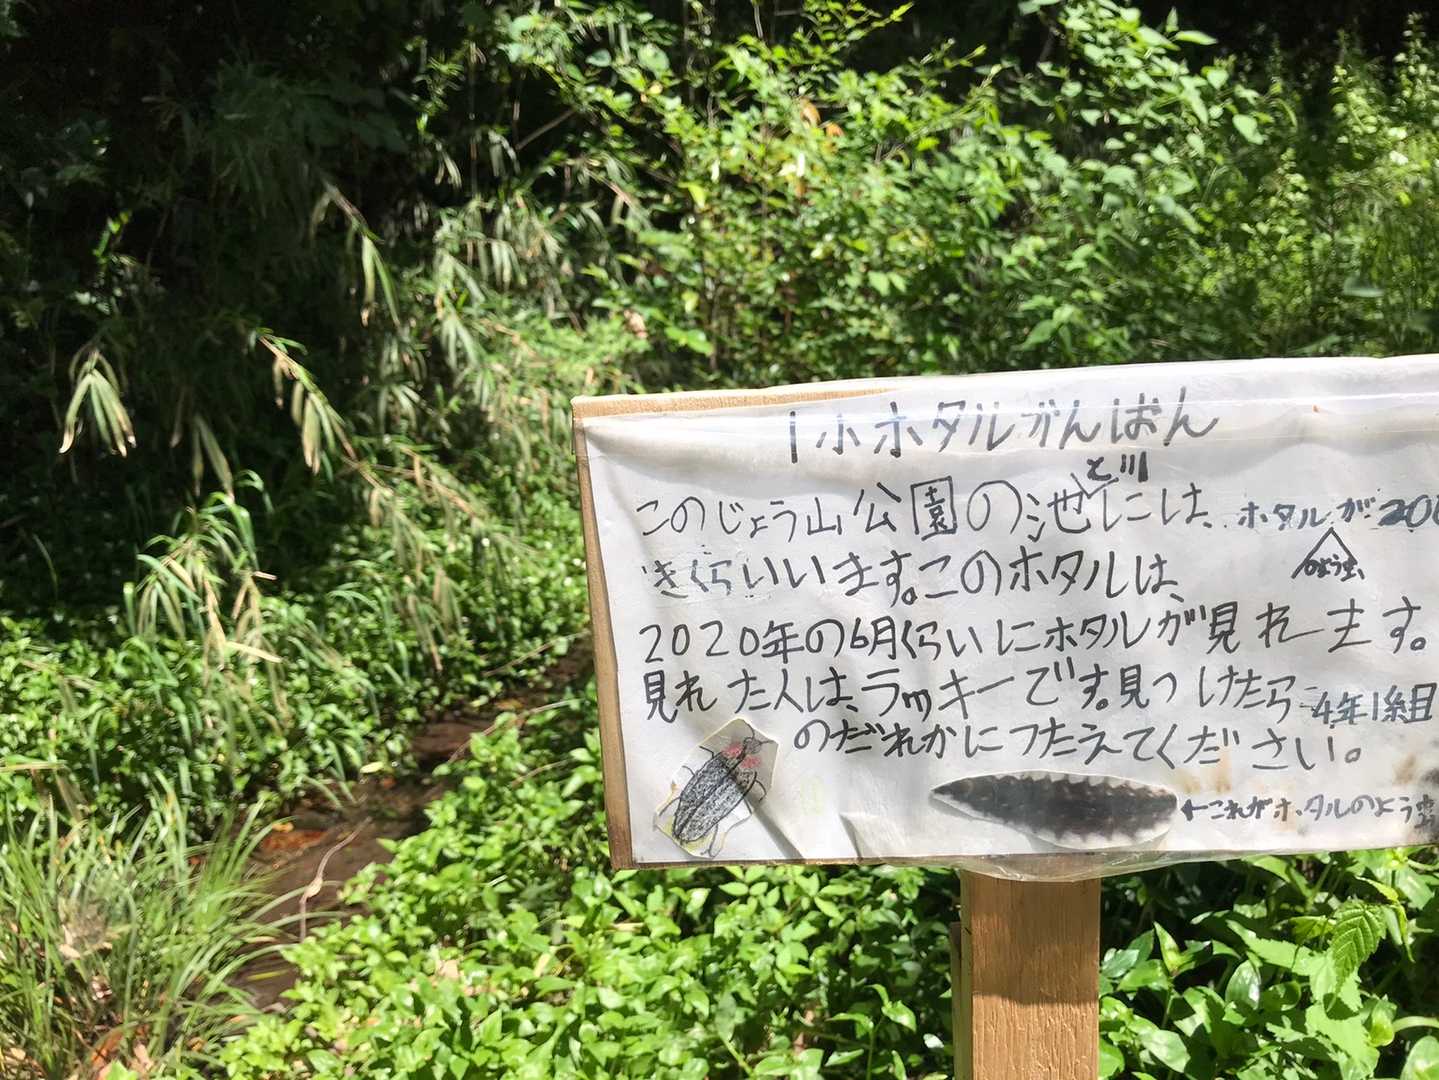 1小ホタルかんばん
このじょう山公園の池と川には、ホタルが200
のよう虫
きくらいいます。このホタルは、
2020年の6月くらいにホタルが見れます。
見れた人は、ラッキーです。見つけたら4年1組
のだれかにつたえてください。
←これがホタルのよう虫